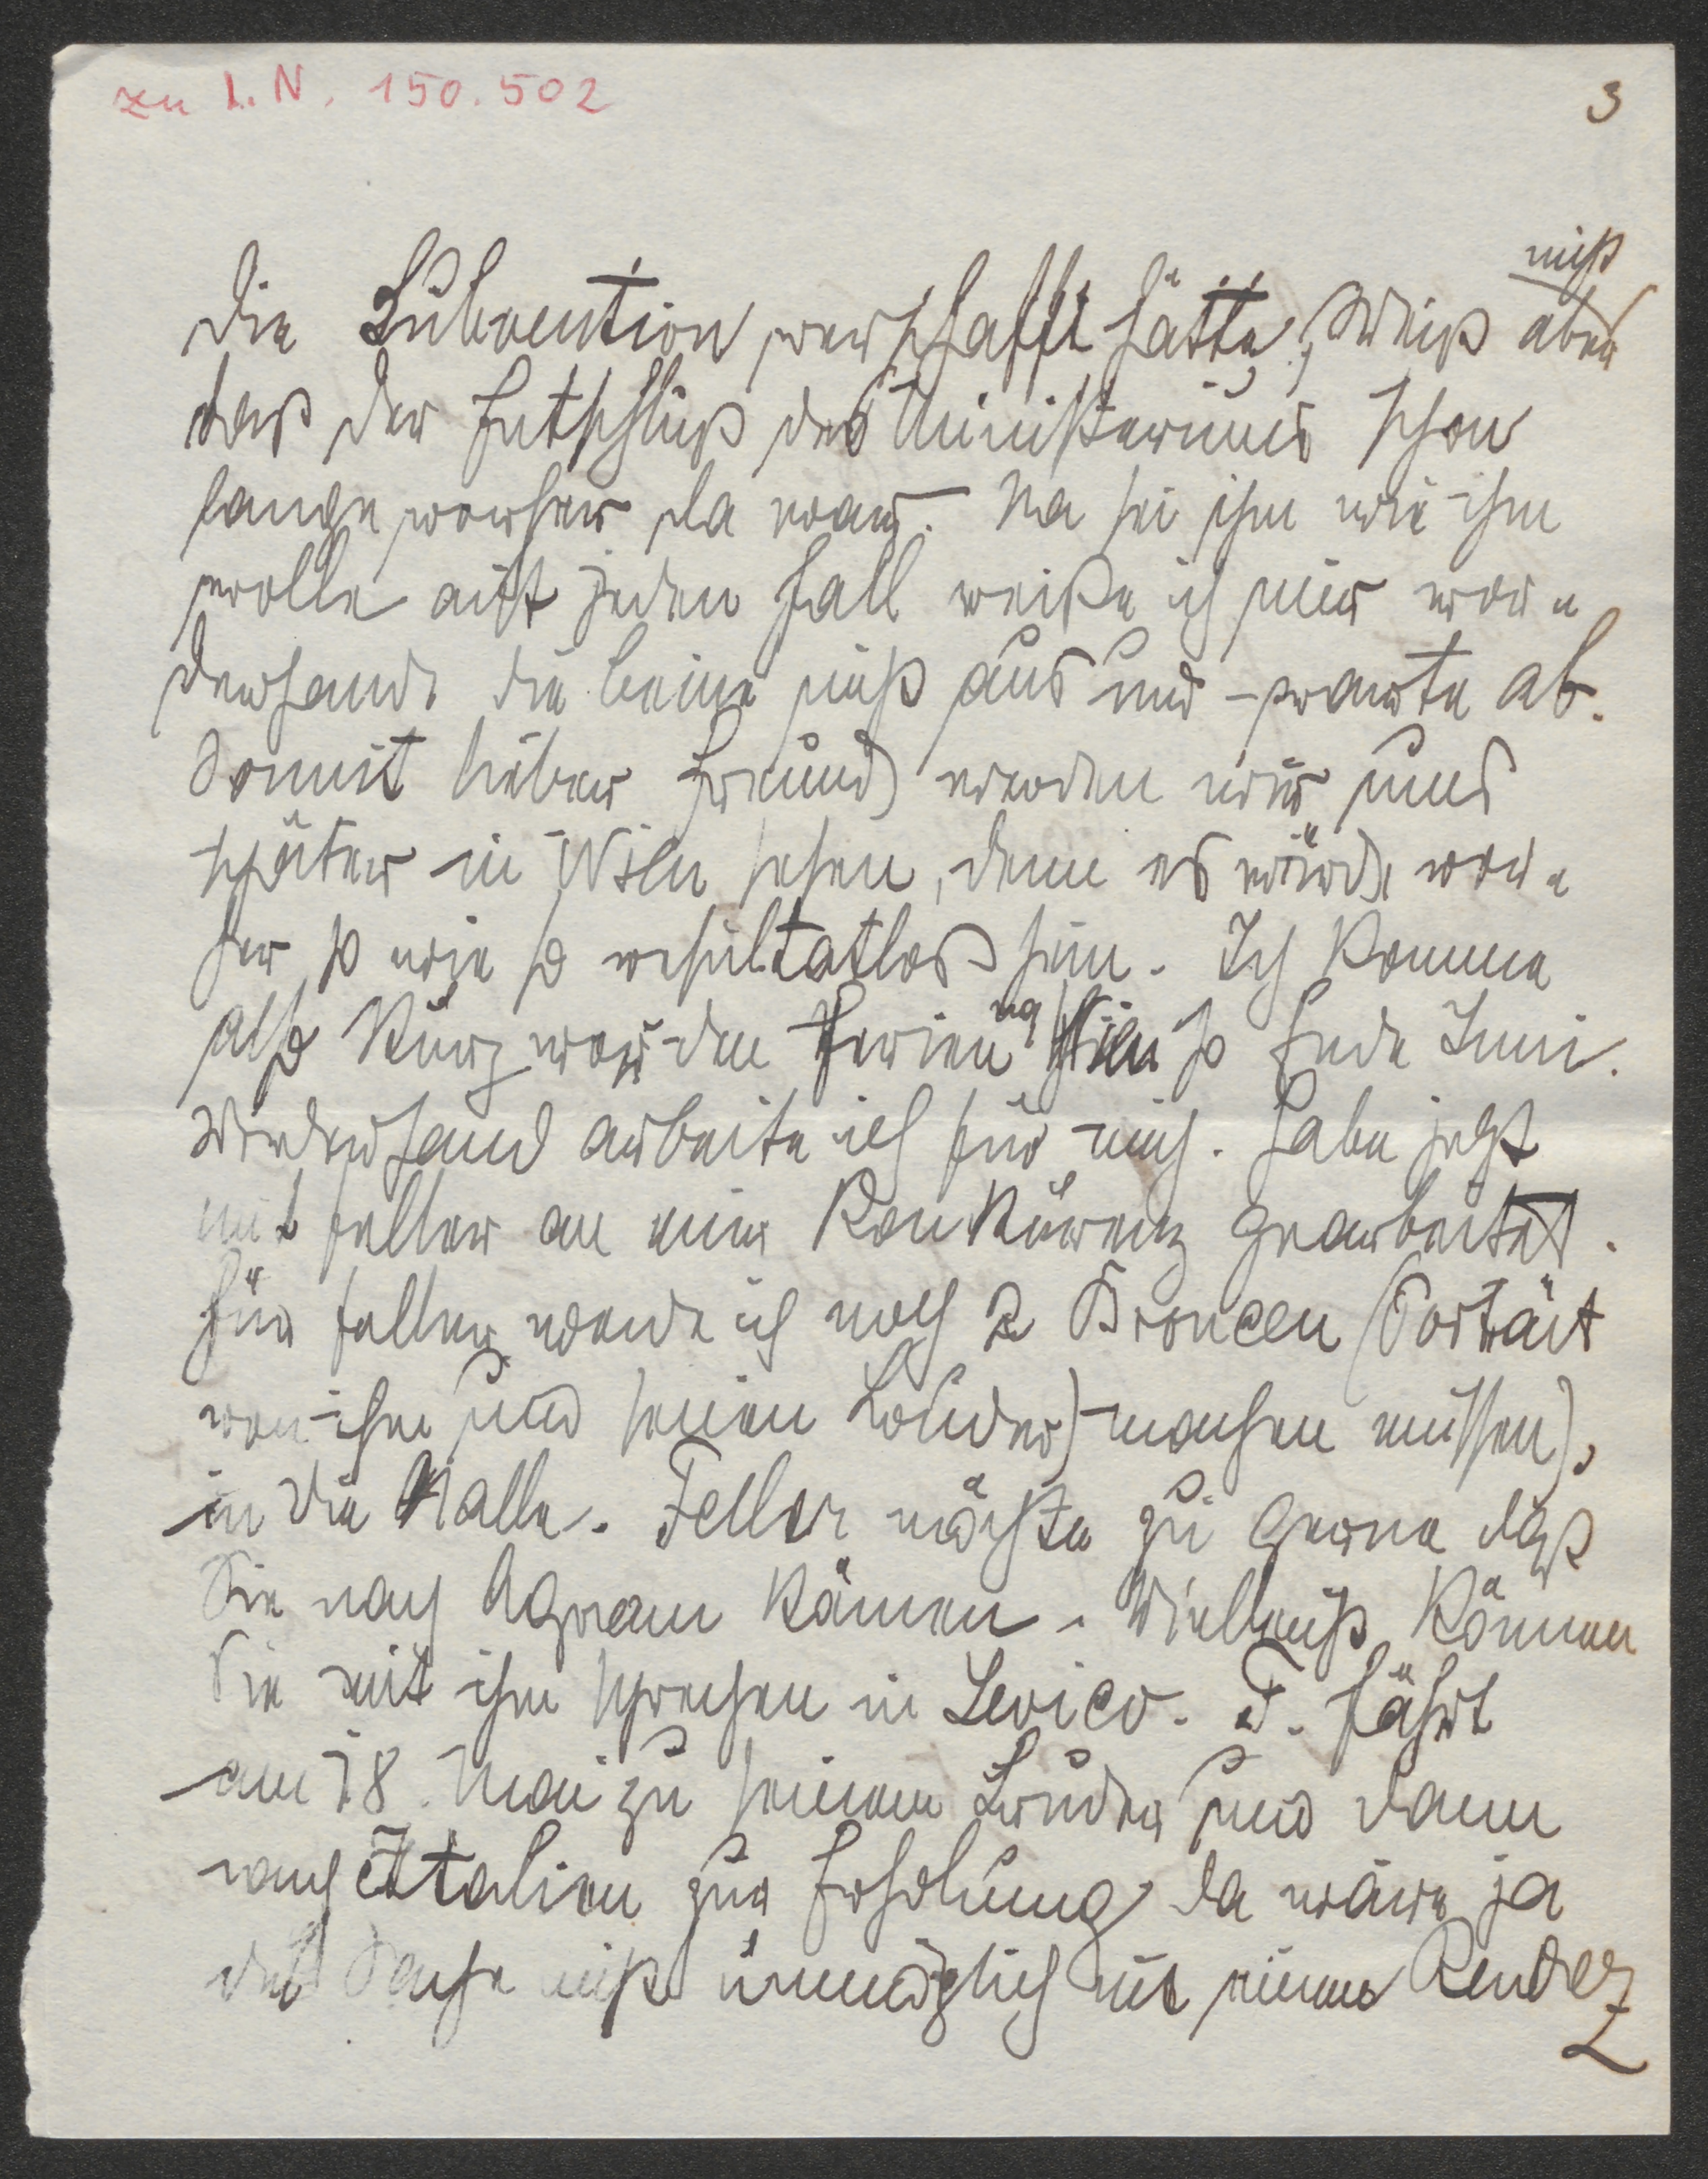 zu I.N. 150.502
3
nicht
die Subvention verschafft hätte, Weiß aber
daß der Entschluß des Ministeriums schon
lange vorher da war. Na sei ihm wie ihm
wolle auf jeden Fall reiße ich mir vor-
derhand die beine nicht aus und warte ab.
Somit lieber Freund werden wir uns
später in Wien sehen, denn es würde vor-
her so wie so resultatlos sein. Ich komme
also kurz vor den Ferien nach Wien so Ende Juni.
Vorderhand arbeite ich für mich. Habe jetzt
mit Feller an einer Konkurenz gearbeitet.
Für Feller werde ich noch 2 Broncen (Porträt
von ihm und seinen Bruder) machen müssen),
in die Halle. Feller möchte zu gerne daß
Sie nach Agram kämen. Vielleicht können
Sie mit ihm sprechen in Levico. F. fährt
am 18. Mai zu seinem Bruder und dann
nach Italien zur Erholung da wäre ja
die Sache nicht unmöglich mit einem Rendez